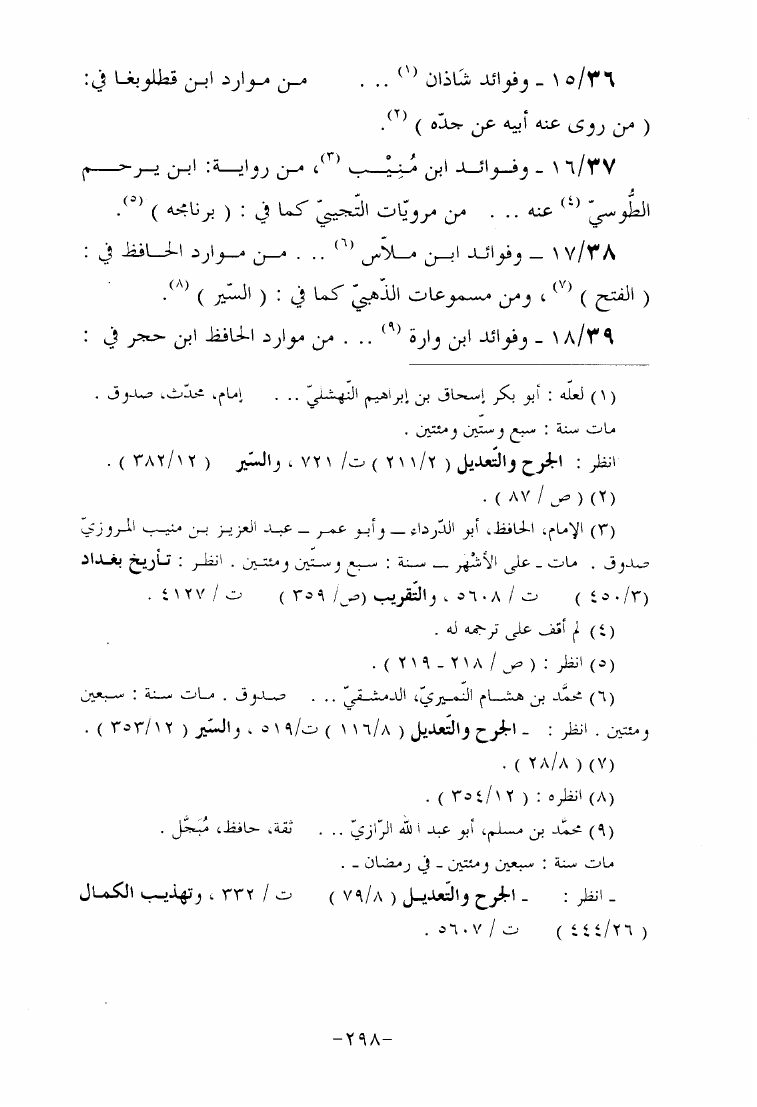 ١٥/٣٦ - وفوائد شَاذان (١) . . . من موارد ابن قطلوبغا في:
( من روى عنه أبيه عن جدّه ) (٢).
١٦/٣٧ - وفوائد ابن مُنِيْب (٣)، من رواية: ابن يرحم
الطُّوسيّ (٤) عنه . . . من مرويّات التُّجيبيّ كما في : ( برنامجه ) (٥).
١٧/٣٨ - وفوائد ابن ملاّس (٦) . . . من موارد الحافظ في :
( الفتح ) (٧) ، ومن مسموعات الذّهبيّ كما في : ( السِّير ) (٨).
١٨/٣٩ - وفوائد ابن وارة (٩) . . . من موارد الحافظ ابن حجر في :
(١) لعلّه : أبو بكر إسحاق بن إبراهيم النّهشليّ . . . إمام، محدّث، صدوق .
مات سنة : سبع وستّين ومئتين .
انظر : الجرح والتّعديل ( ٢١١/٢ ) ت/ ٧٢١ ، والسِّير ( ٣٨٢/١٢ ) .
(٢) ( ص / ٨٧ ) .
(٣) الإمام، الحافظ، أبو الدّرداء – وأبو عمر – عبد العزيز بن منيب المروزيّ
صدوق . مات - على الأشهر – سنة : سبع وستّين ومئتين . انظر : تأريخ بغداد
(٤٥٠/٣ ) ت / ٥٦٠٨ ، والتّقريب (ص/ ٣٥٩ ) ت / ٤١٢٧ .
(٤) لم أقف على ترجمه له .
(٥) انظر : ( ص / ٢١٨ - ٢١٩ ) .
(٦) محمّد بن هشام النّميريّ، الدمشقيّ . . . صدوق . مات سنة : سبعين
ومئتين . انظر : - الجرح والتّعديل ( ١١٦/٨ ) ت/٥١٩ ، والسِّير ( ٣٥٣/١٢ ) .
(٧) ( ٢٨/٨ ) .
(٨) انظره : ( ٣٥٤/١٢ ) .
(٩) محمّد بن مسلم، أبو عبد الله الرّازيّ . . . ثقة، حافظ، مُبَجَّل .
مات سنة : سبعين ومئتين - في رمضان - .
- انظر : - الجرح والتّعديل ( ٧٩/٨ ) ت / ٣٣٢ ، وتهذيب الكمال
( ٤٤٤/٢٦ ) ت / ٥٦٠٧ .
-٢٩٨-